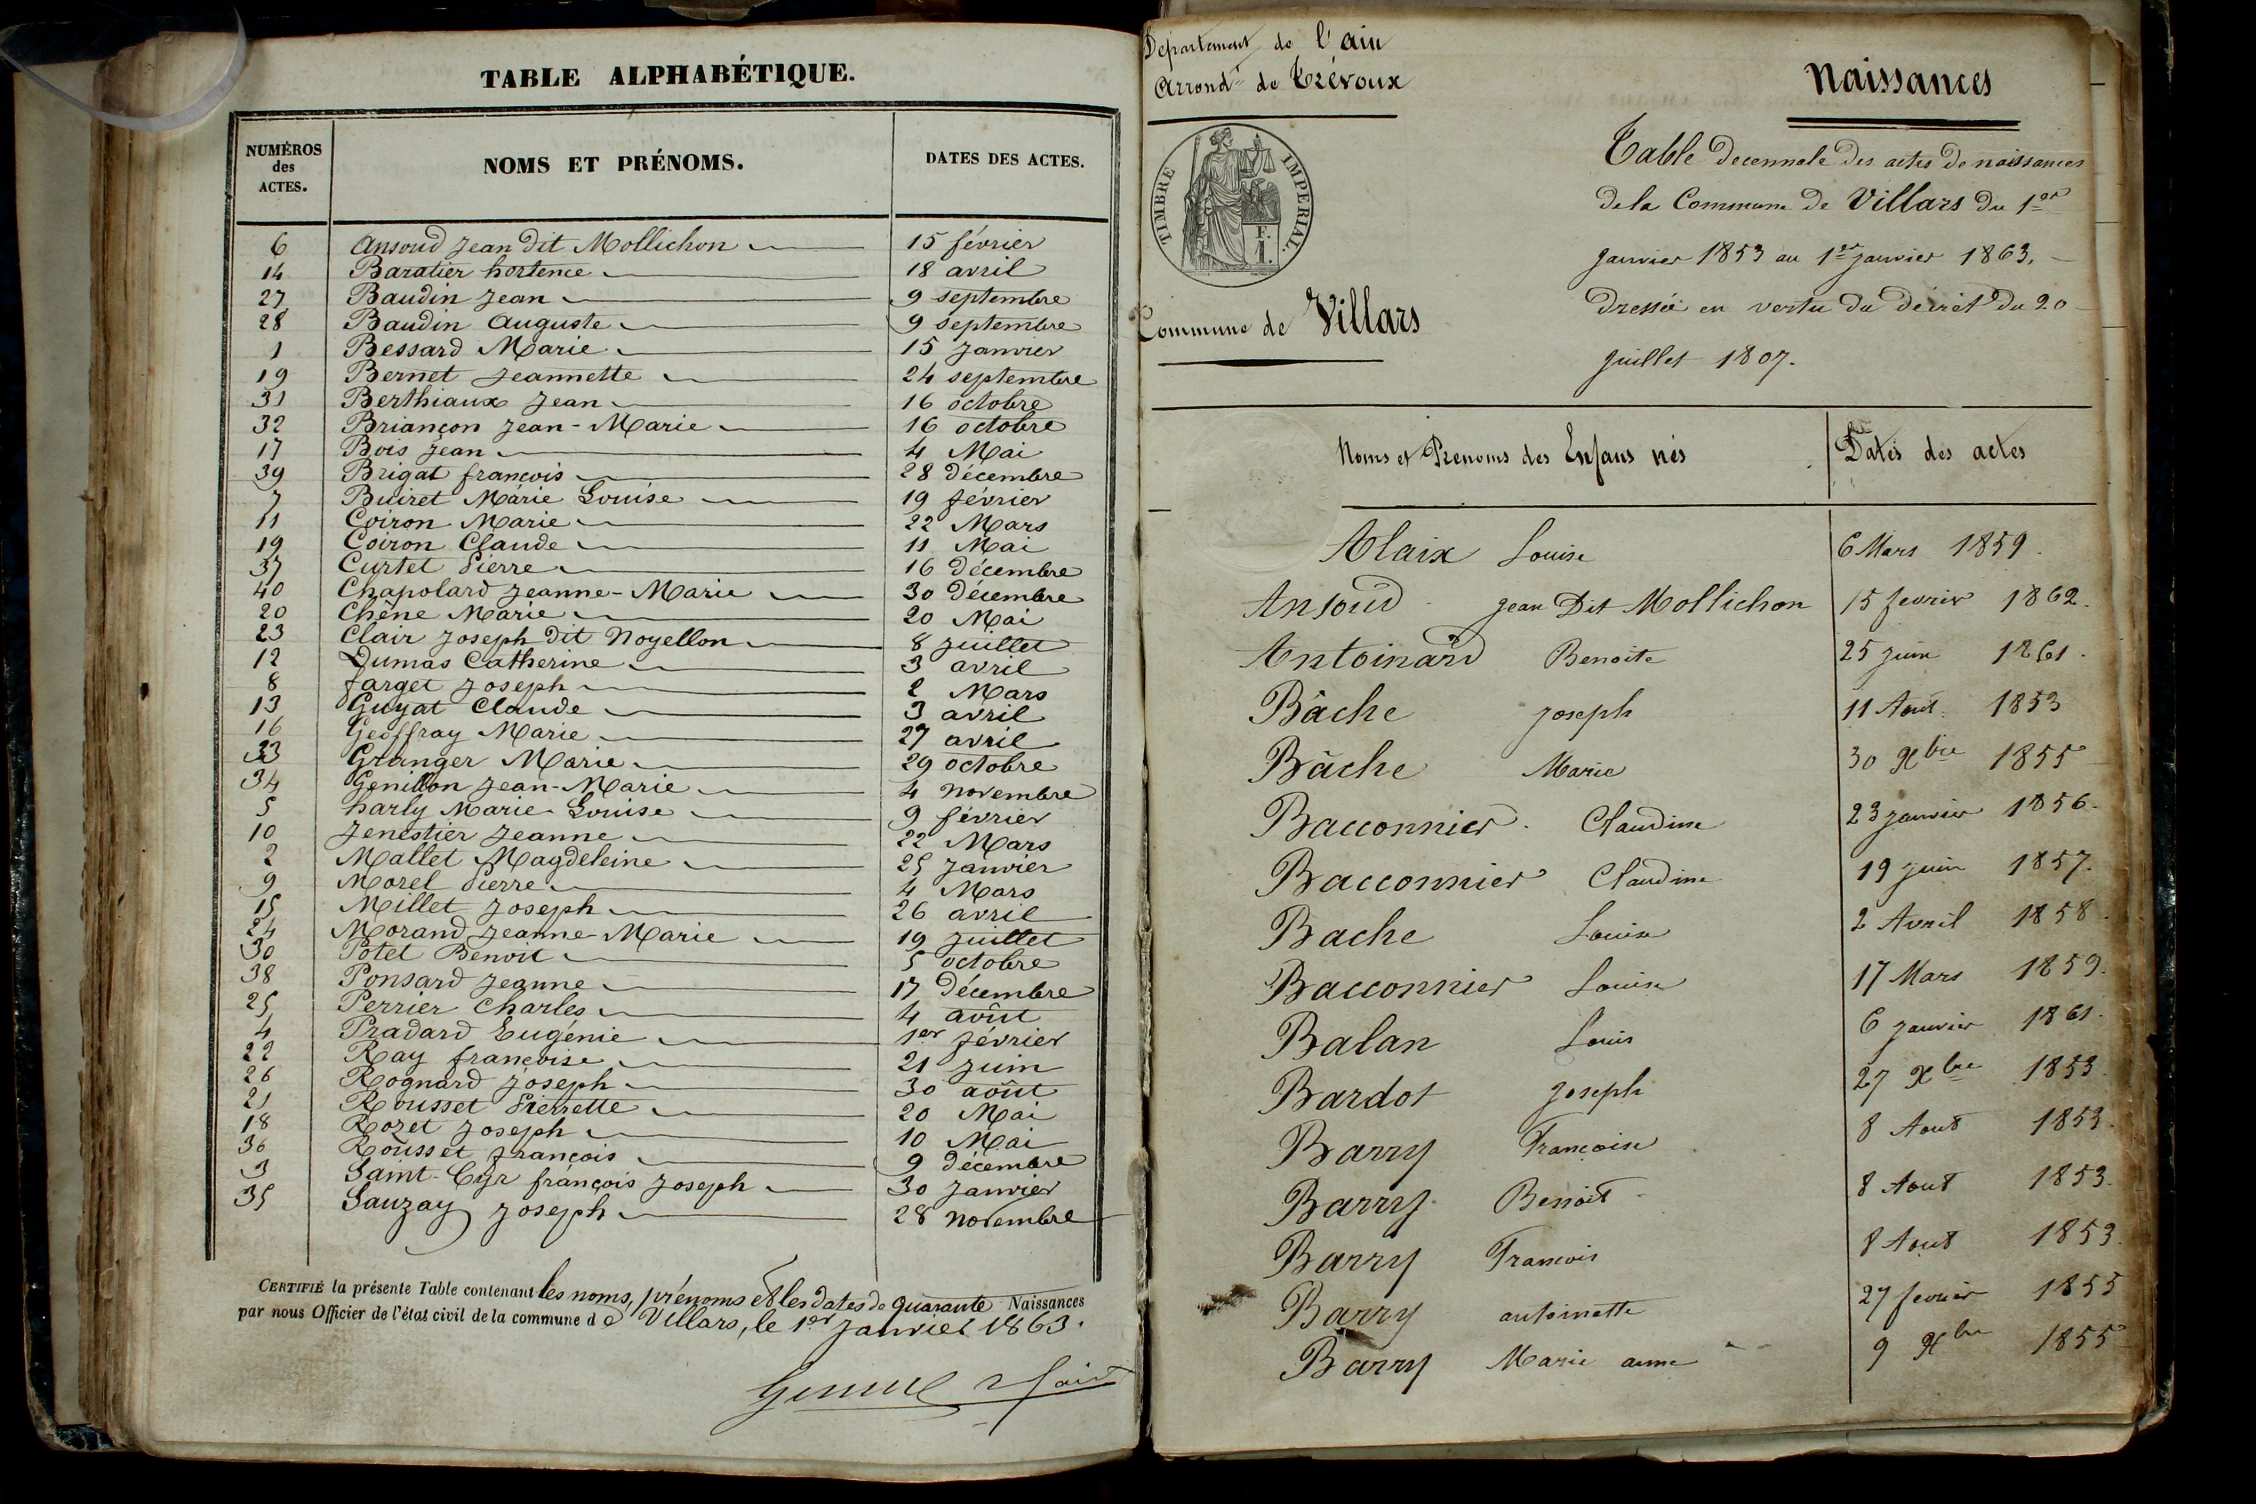 TABLE ALPHABÉTIQUE.
NUMÉROS des ACTES. NOMS ET PRÉNOMS. DATES DES ACTES.
6 Ansoud Jean dit Mollichon 15 février
14 Baratier hortence 18 avril
27 Baudin Jean 9 septembre
28 Baudin Auguste 9 septembre
1 Bessard Marie 15 Janvier
19 Bernet Jeannette 24 septembre
31 Berthiaux Jean 16 octobre
32 Briançon Jean-Marie 16 octobre
17 Bois Jean 4 Mai
39 Brigat françois 28 décembre
7 Buiret Marie Louise 19 février
11 Coiron Marie 22 Mars
19 Coiron Claude 11 Mai
37 Curtet Pierre 16 décembre
40 Chapolard Jeanne-Marie 30 décembre
20 Chêne Marie 20 Mai
23 Clair Joseph dit Noyellon 8 Juillet
12 Dumas Catherine 3 avril
8 farget Joseph 2 Mars
13 Guyat Claude 3 avril
16 Geoffray Marie 27 avril
33 Granger Marie 29 octobre
34 Genillon Jean-Marie 4 novembre
5 harly Marie Louise 9 février
10 Jenestier Jeanne 22 Mars
2 Mallet Magdeleine 25 Janvier
9 Morel Pierre 4 Mars
15 Millet Joseph 26 avril
24 Morand Jeanne-Marie 19 Juillet
30 Potet Benoit 5 octobre
38 Ponsard Jeanne 17 décembre
25 Perrier Charles 4 août
4 Pradard Eugénie 1er février
22 Ray françoise 21 Juin
26 Rognard Joseph 30 août
21 Rousset Pierrette 20 Mai
18 Rozet Joseph 10 Mai
36 Rousset françois 9 décembre
3 Saint-Cyr françois Joseph 30 Janvier
35 Sauzay Joseph 28 novembre
CERTIFIÉ la présente Table contenant les noms, prénoms et les dates de quarante Naissances
par nous Officier de l'état civil de la commune de Villars, le 1er Janvier 1863.
Département de l'ain
Arrondt de Trévoux
TIMBRE IMPERIAL.
F. 1.
Commune de Villars
Naissances
Table decennale des actes de naissances
de la Commune de Villars du 1er
Janvier 1853 au 1er Janvier 1863.
dressée en vertu du décrèt du 20
Juillet 1807.
Noms et Prenoms des Enfans nés Dates des actes
Alaix Louise 6 Mars 1859.
Ansoud Jean Dit Mollichon 15 fevrier 1862.
Antoinard Benoite 25 juin 1861.
Bâche Joseph 11 Aout 1853
Bâche Marie 30 Xbre 1855
Bacconnier Claudine 23 janvier 1856.
Bacconnier Claudine 19 juin 1857.
Bache Louise 2 Avril 1858.
Bacconnier Louise 17 Mars 1859.
Balan Louis 6 janvier 1861.
Bardot Joseph 27 Xbre 1853.
Barry Françoise 8 Aout 1853.
Barry Benoit 8 Aout 1853.
Barry Francois 8 Aout 1853.
Barry antoinette 27 fevrier 1855
Barry Marie anne 9 Xbre 1855